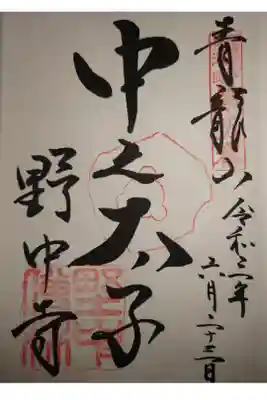 青龍山
令和二年
六月二十三日
中之太子
野中寺